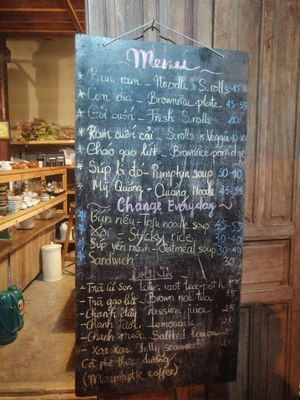 Menu
* Bún nem - Noodle & S.rolls 45-55
* Cơm dĩa - Brownrice plate 45-55
* Gỏi cuốn - Fresh S.rolls 20
* Ram cuốn cải - S.rolls & Veggie
* Cháo gạo lứt - Brownrice porridge
* Súp bí đỏ - Pumpkin soup 30-40
* Mỳ Quảng - Quảng Noodle 45-55
Change Everyday
* Bún riêu - Tofu noodle soup 45-55
* Xôi - Sticky rice 30-40
* Súp yến mạch - Oatmeal soup 30-40
* Sandwich 30
DRINK
- Trà củ sen Lotus root tea pot
- Trà gạo lứt - Brown rice tea
- Chanh dây - Passion juice
- Chanh tươi - Lemonade
- Chanh muối - Salted lemon
- Xoa Xoa - Jelly seaweed
Cà phê thực dưỡng
(Macrobiotic coffee)